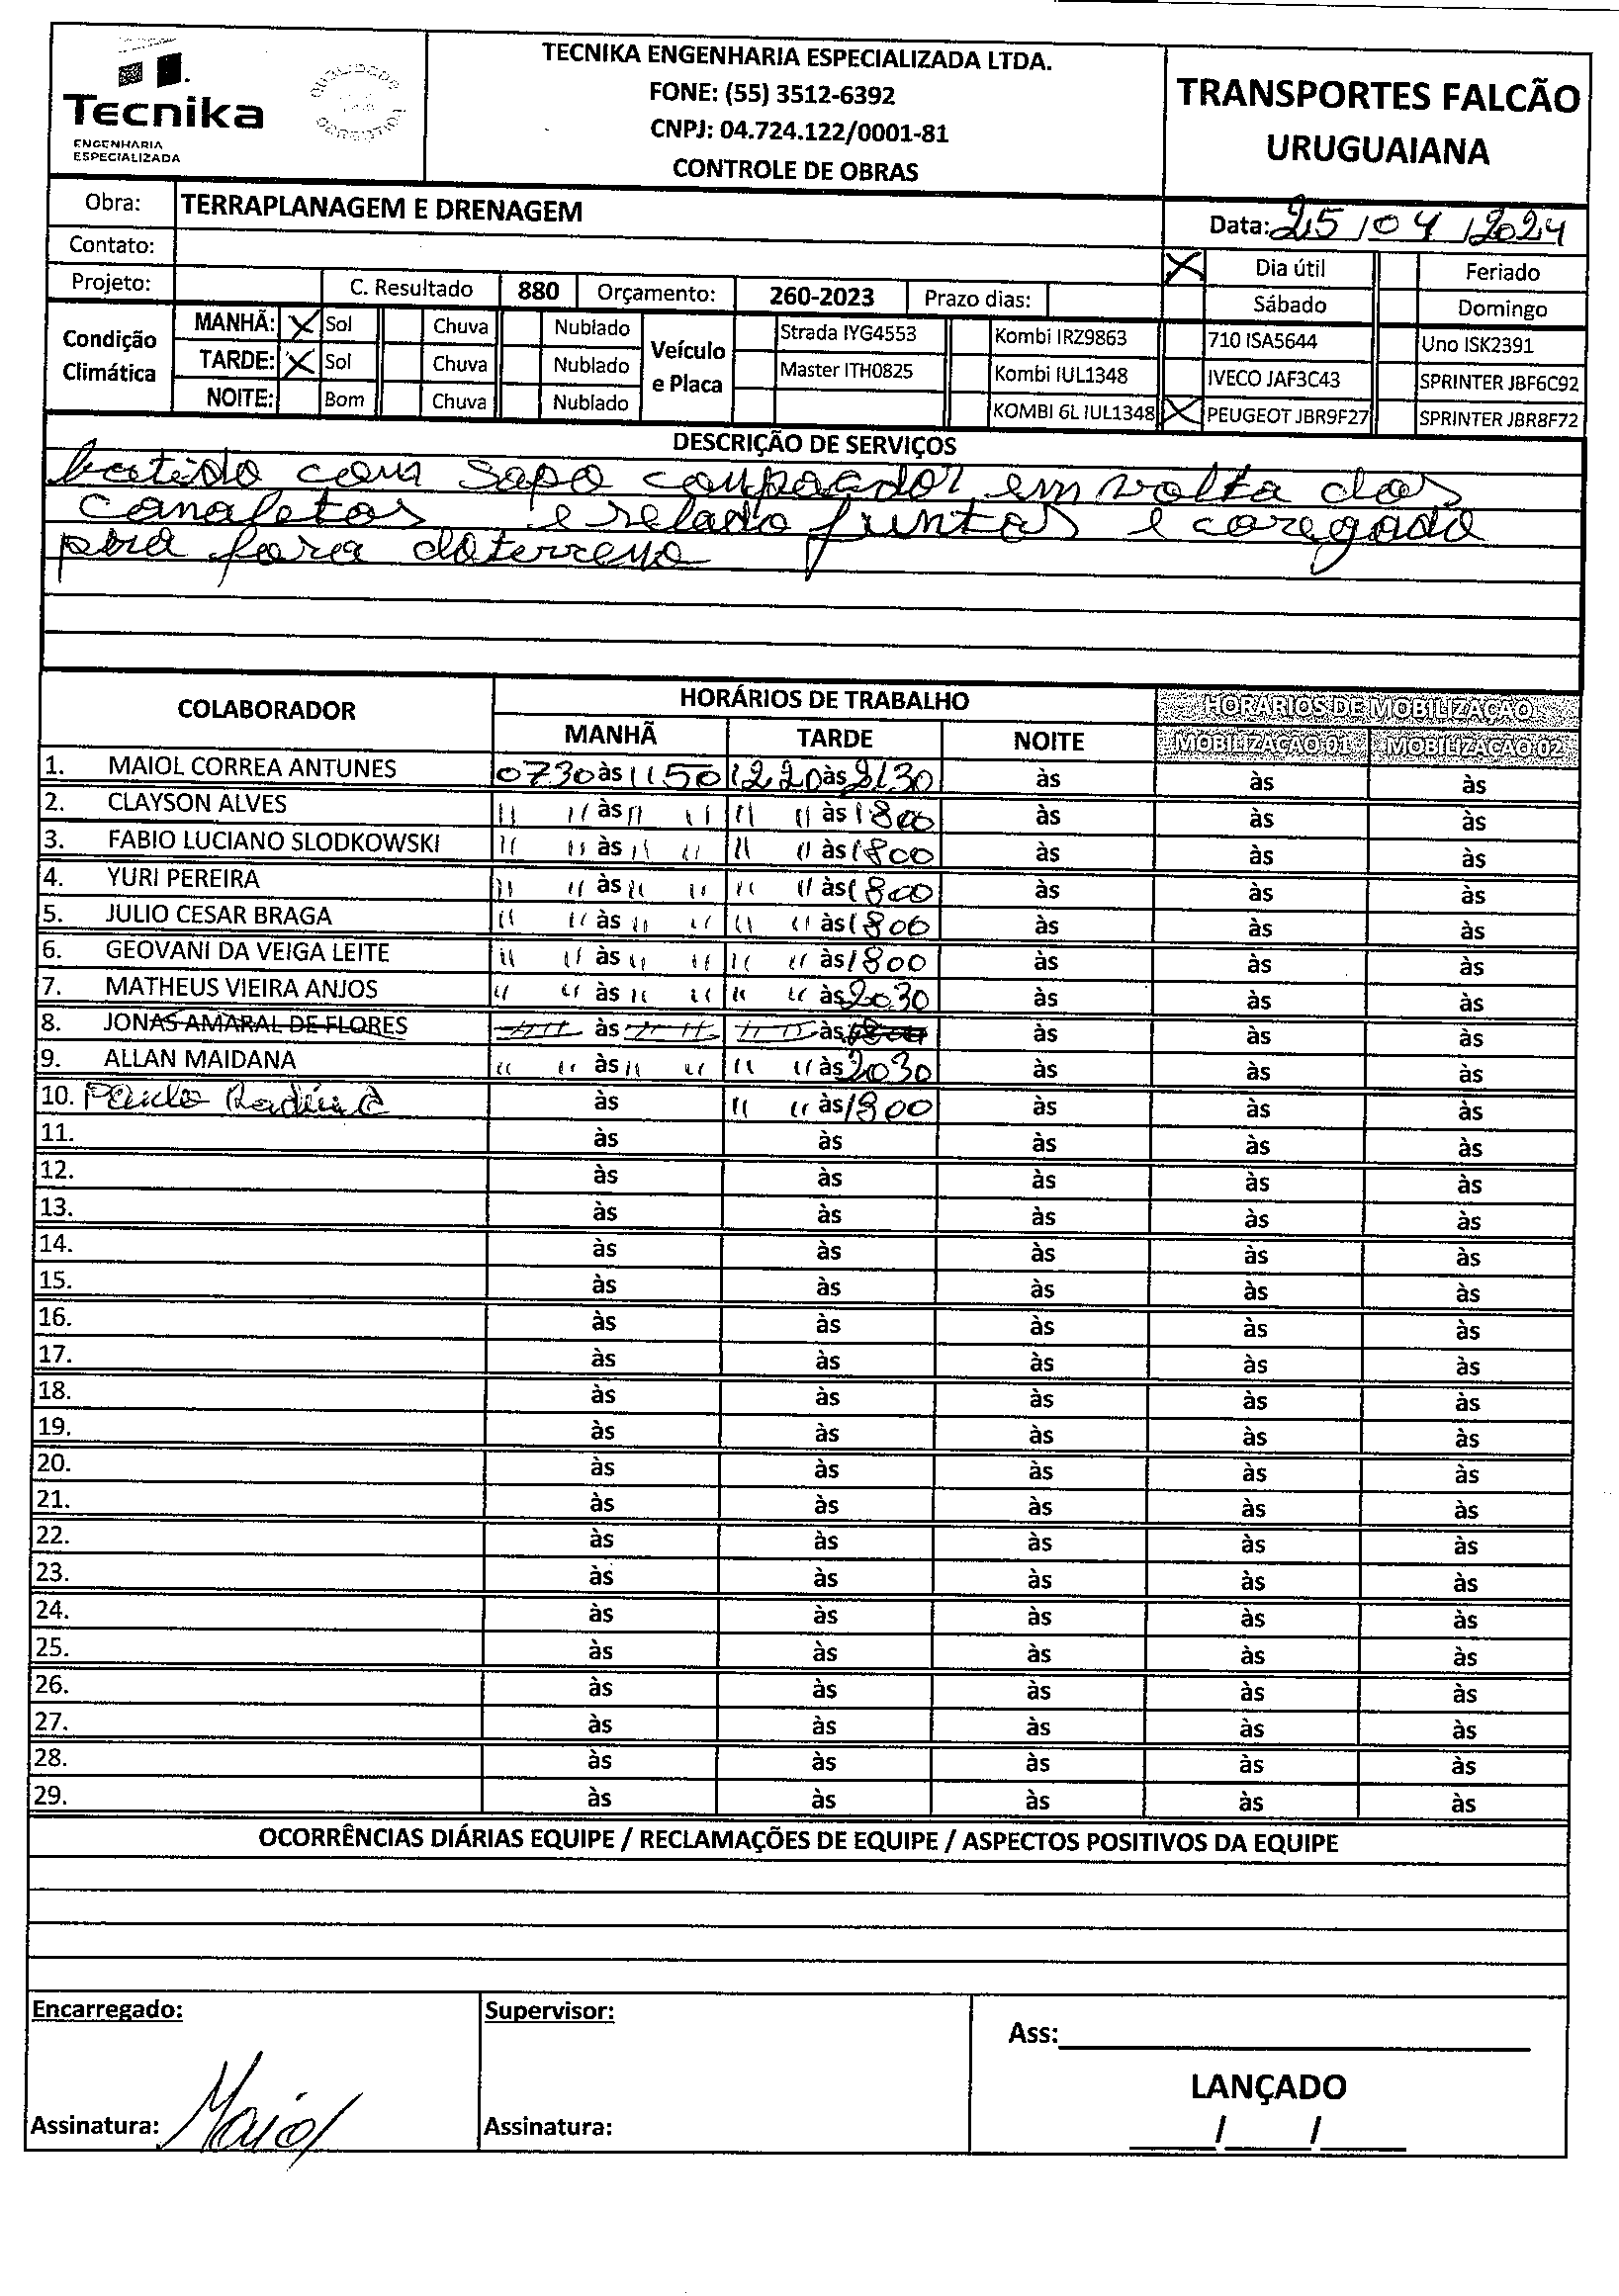 Tecnika
ENGENHARIA
ESPECIALIZADA
TECNIKA ENGENHARIA ESPECIALIZADA LTDA.
FONE: (55) 3512-6392
CNPJ: 04.724.122/0001-81
CONTROLE DE OBRAS
TRANSPORTES FALCÃO
URUGUAIANA
Obra: TERRAPLANAGEM E DRENAGEM
Data: 25/04/2024
Contato:
X Dia útil Feriado
Projeto: C. Resultado 880 Orçamento: 260-2023 Prazo dias:
Sábado Domingo
Condição Climática
MANHÃ: X Sol Chuva Nublado
TARDE: X Sol Chuva Nublado
NOITE: Bom Chuva Nublado
Veículo e Placa
Strada IYG4553 Kombi IRZ9863 710 ISA5644 Uno ISK2391
Master ITH0825 Kombi IUL1348 IVECO JAF3C43 SPRINTER JBF6C92
KOMBI 6L IUL1348 X PEUGEOT JBR9F27 SPRINTER JBR8F72
DESCRIÇÃO DE SERVIÇOS
batido com sapo compaador em volta das
canaletas e selado juntas e caregado
pra fora do terreno
COLABORADOR HORÁRIOS DE TRABALHO HORÁRIOS DE MOBILIZAÇÃO
MANHÃ TARDE NOITE MOBILIZAÇÃO 01 MOBILIZAÇÃO 02
1. MAIOL CORREA ANTUNES 0730 às 1150 1220 às 2130 às às às
2. CLAYSON ALVES " " às " " " " às 1800 às às às
3. FABIO LUCIANO SLODKOWSKI " " às " " " " às 1800 às às às
4. YURI PEREIRA " " às " " " " às 1800 às às às
5. JULIO CESAR BRAGA " " às " " " " às 1800 às às às
6. GEOVANI DA VEIGA LEITE " " às " " " " às 1800 às às às
7. MATHEUS VIEIRA ANJOS " " às " " " " às 2030 às às às
8. JONAS AMARAL DE FLORES " " às " " " " às 1800 às às às
9. ALLAN MAIDANA " " às " " " " às 2030 às às às
10. Paulo às " " às 1800 às às às
11. às às às às às
12. às às às às às
13. às às às às às
14. às às às às às
15. às às às às às
16. às às às às às
17. às às às às às
18. às às às às às
19. às às às às às
20. às às às às às
21. às às às às às
22. às às às às às
23. às às às às às
24. às às às às às
25. às às às às às
26. às às às às às
27. às às às às às
28. às às às às às
29. às às às às às
OCORRÊNCIAS DIÁRIAS EQUIPE / RECLAMAÇÕES DE EQUIPE / ASPECTOS POSITIVOS DA EQUIPE
Encarregado: Supervisor:
Ass:
LANÇADO
Assinatura: Maiol Assinatura:
/ /